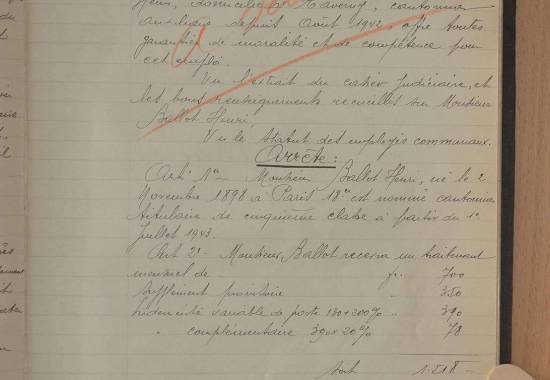 Henri, domicilié à Taverny, cantonnier
auxiliaire depuis Août 1942, offre toutes
garanties de moralité et de compétence pour
cet emploi.
Vu l'extrait du casier judiciaire, et
les bons renseignements recueillis sur Monsieur
Ballot Henri,
Vu le statut des employés communaux.
Arrête:
Art: 1er Monsieur Ballot Henri, né le 2
Novembre 1898 à Paris 18e est nommé cantonnier
titulaire de cinquième classe à partir du 1er
Juillet 1943.
Art 2e Monsieur Ballot recevra un traitement
mensuel de fr. 700
Supplément provisoire 350
Indemnité variable de poste 190+200% 390
" complémentaire 390 x 20% 78
Soit 1.518 -